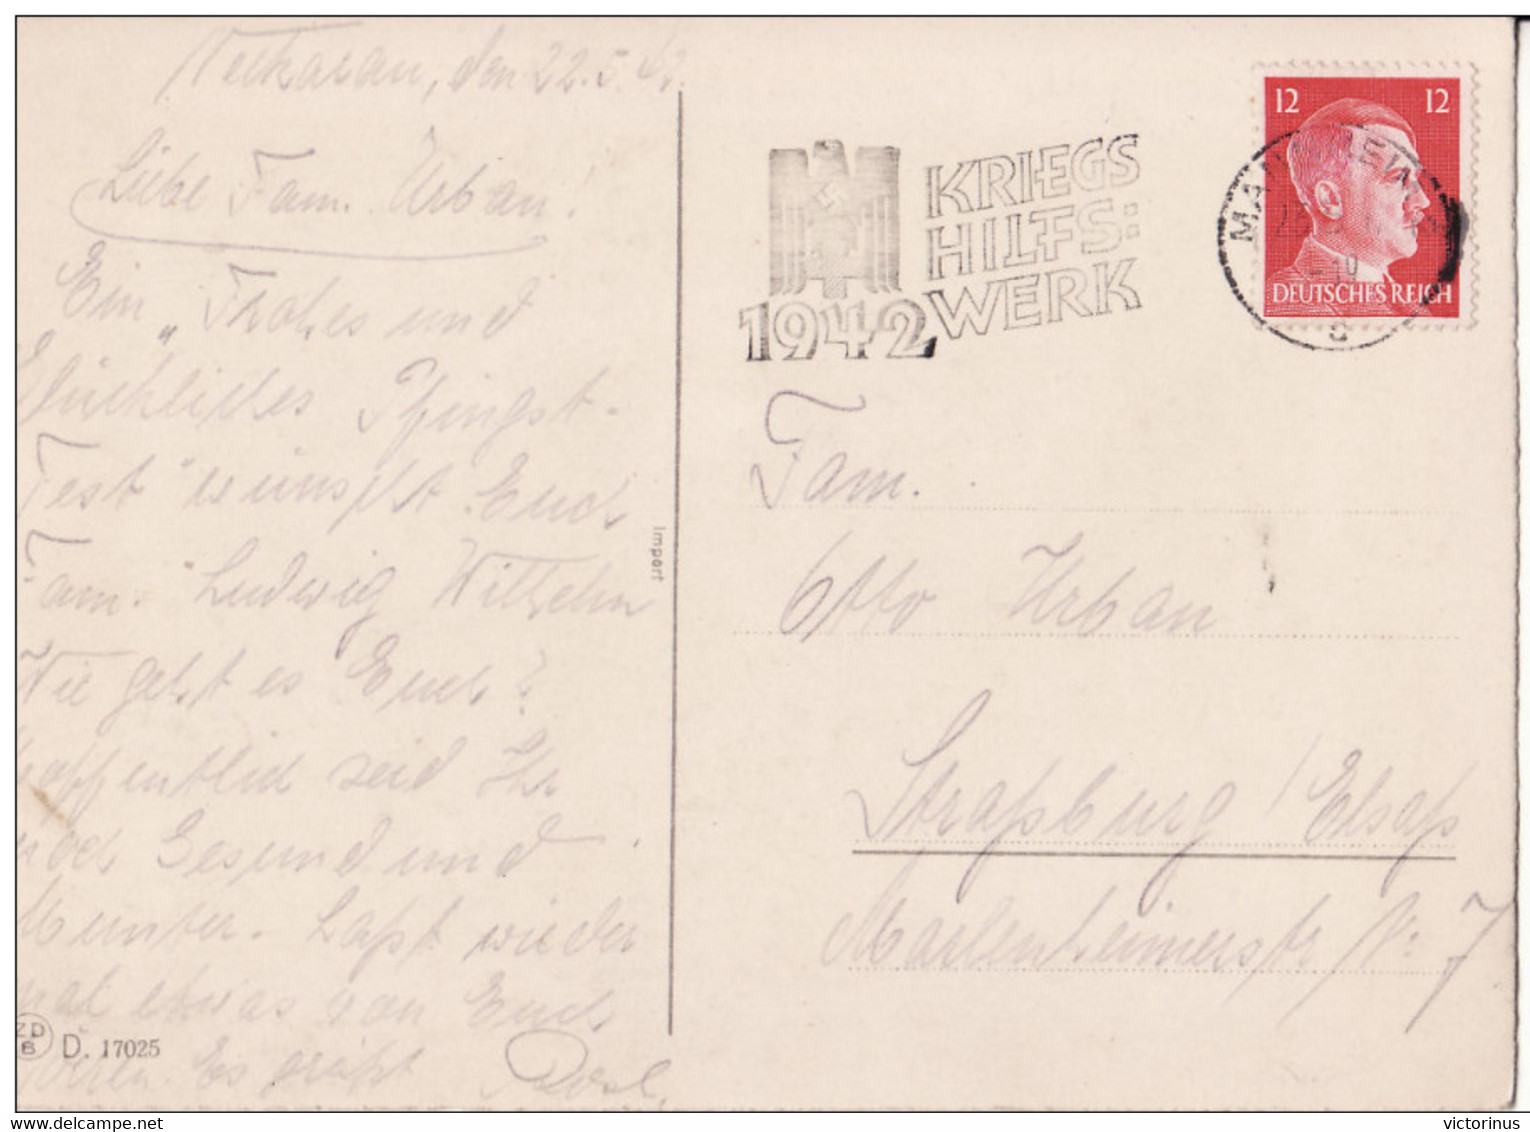 Neckarau, den 22.5.42.
Liebe Fam. Urban!
Ein „Frohes und
Glückliches Pfingst-
Fest" wünscht Euch
Fam. Ludwig Wilhelm
Wie geht es Euch?
hoffentlich seid Ihr
noch Gesund und
Munter. Laßt wieder
mal etwas von Euch
hören. Es grüßt
ZD
B
D. 17025
Import
KRIEGS
HILFS:
WERK
1942
12 12
DEUTSCHES REICH
MANNHEIM
Fam.
Otto Urban
Straßburg / Elsaß
Marlenheimerstr N: 7
www.delcampe.net
victorinus